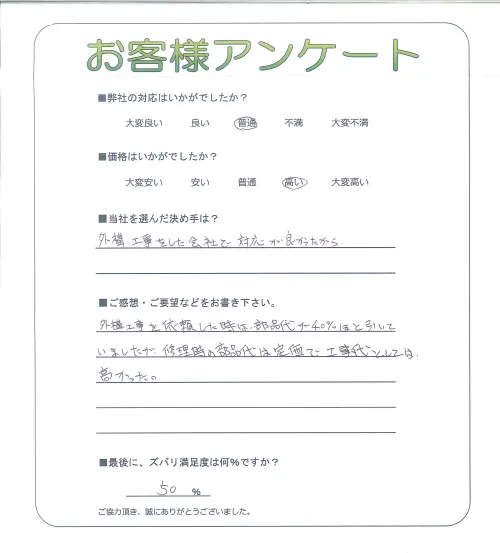 お客様アンケート
■弊社の対応はいかがでしたか?
大変良い 良い 普通 不満 大変不満
■価格はいかがでしたか?
大変安い 安い 普通 高い 大変高い
■当社を選んだ決め手は?
外構工事をした会社で対応が良かったから
■ご感想・ご要望などをお書き下さい。
外構工事を依頼した時は、部品代が40%ほど引いて
いましたが、修理時の部品代は定価で、工事代としては、
高かった。
■最後に、ズバリ満足度は何%ですか?
50 %
ご協力頂き、誠にありがとうございました。